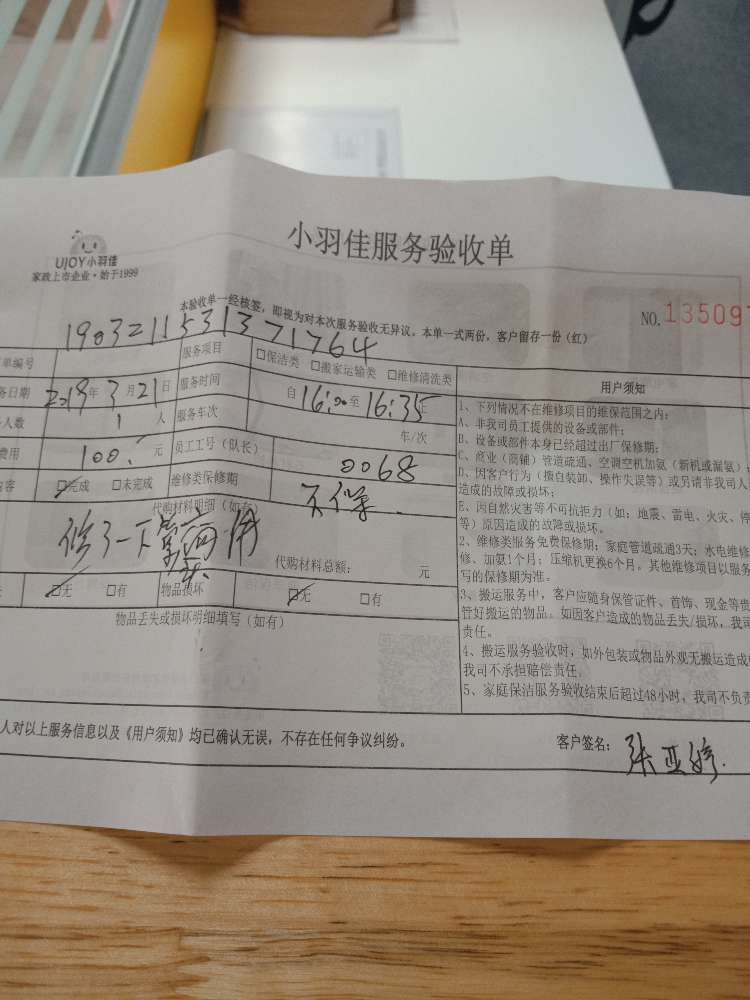 小羽佳服务验收单
UJOY小羽佳
家政上市企业·始于1999
本验收单一经核签,即视为对本次服务验收无异议。本单一式两份,客户留存一份(红)
NO.13509
单编号 1903211531371764 服务项目 □保洁类 □搬家运输类 □维修清洗类
务日期 2019年3月21日 服务时间 自 16:00 至 16:35 止
人数 1 人 服务车次 车/次
费用 100.- 元 员工工号(队长) 0068
内容 □完成 □未完成 维修类保修期 不保
代购材料明细(如有)
修了一下
代购材料总额: 元
□无 □有 物品损坏 □无 □有
物品丢失或损坏明细填写(如有)
用户须知
1、下列情况不在维修项目的维保范围之内:
A、非我司员工提供的设备或部件;
B、设备或部件本身已经超过出厂保修期;
C、商业(商铺)管道疏通、空调空机加氨(新机或漏氨);
D、因客户行为(擅自装卸、操作失误等)或另请非我司人
造成的故障或损坏;
E、因自然灾害等不可抗拒力(如:地震、雷电、火灾、停
等)原因造成的故障或损坏。
2、维修类服务免费保修期:家庭管道疏通3天;水电维修
修、加氨1个月;压缩机更换6个月,其他维修项目以服务
写的保修期为准。
3、搬运服务中,客户应随身保管证件、首饰、现金等贵
管好搬运的物品。如因客户造成的物品丢失/损坏,我司
责任。
4、搬运服务验收时,如外包装或物品外观无搬运造成
我司不承担赔偿责任。
5、家庭保洁服务验收结束后超过48小时,我司不负责
人对以上服务信息以及《用户须知》均已确认无误,不存在任何争议纠纷。
客户签名: 张亚婷